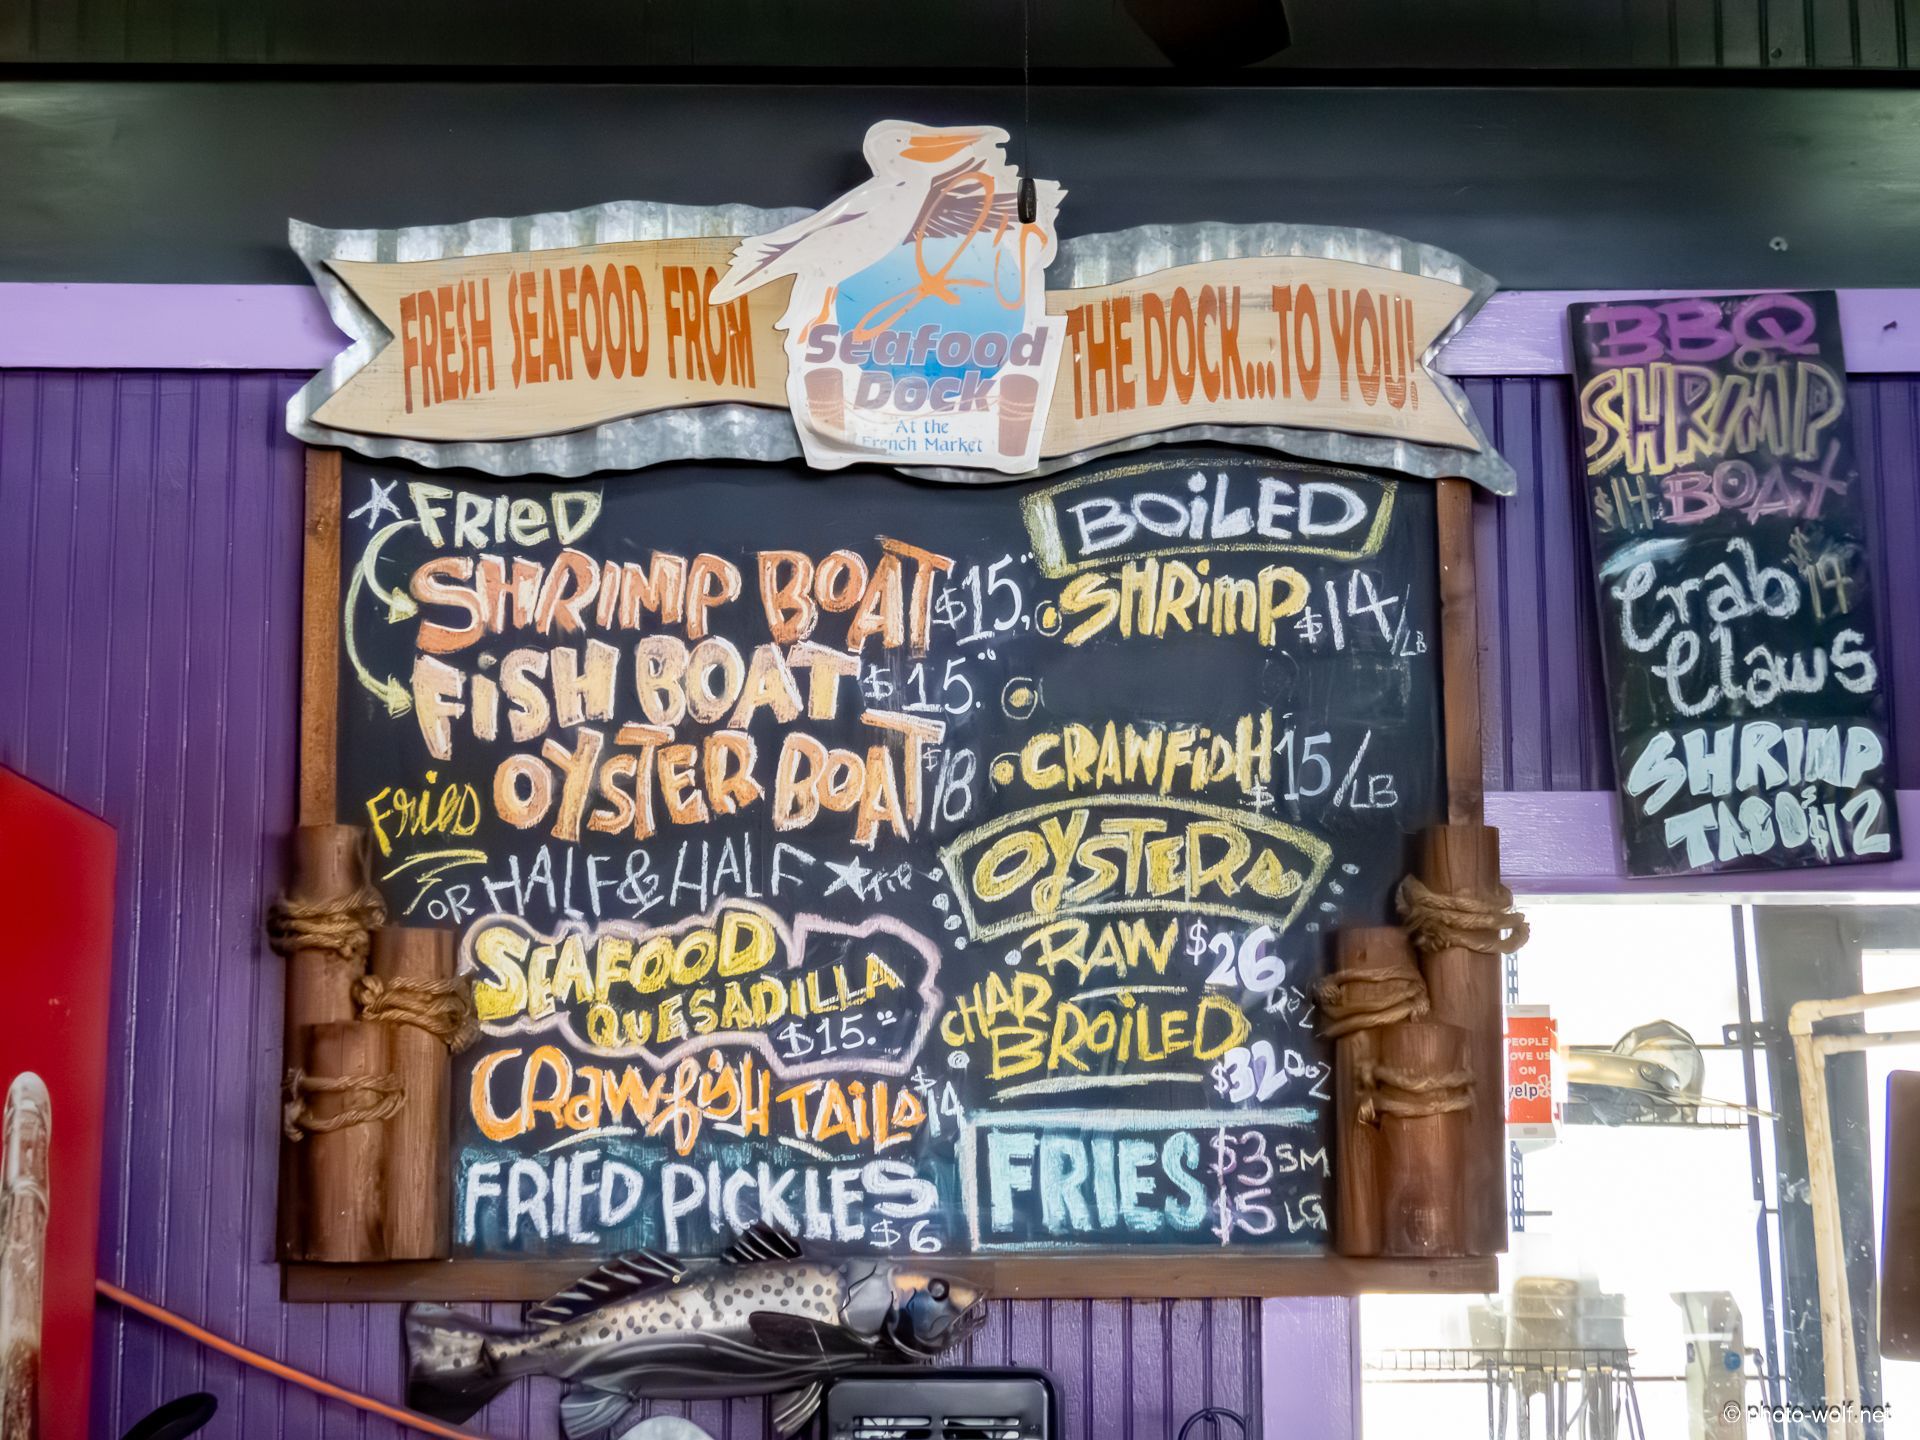 FRESH SEAFOOD FROM
THE DOCK...TO YOU!
J's
Seafood
Dock
At the
French Market
FRIED
SHRIMP BOAT $15.
FISH BOAT $15.
OYSTER BOAT $18
Fries
OR HALF & HALF
SEAFOOD
QUESADILLA
$15.
CRawfisH TAILs $14
FRIED PICKLES
$6
BOiLED
SHRimp $14/LB
CRAWFisH $15/LB
OYSTERs
RAW $26 Doz
CHAR
BROiLED
$32 Doz
FRIES $3 SM
$5 LG
BBQ
SHRIMP
$14 BOAT
Crab
Claws
SHRIMP
TACO $12
PEOPLE
LOVE US
ON
yelp
© photo-wolf.net